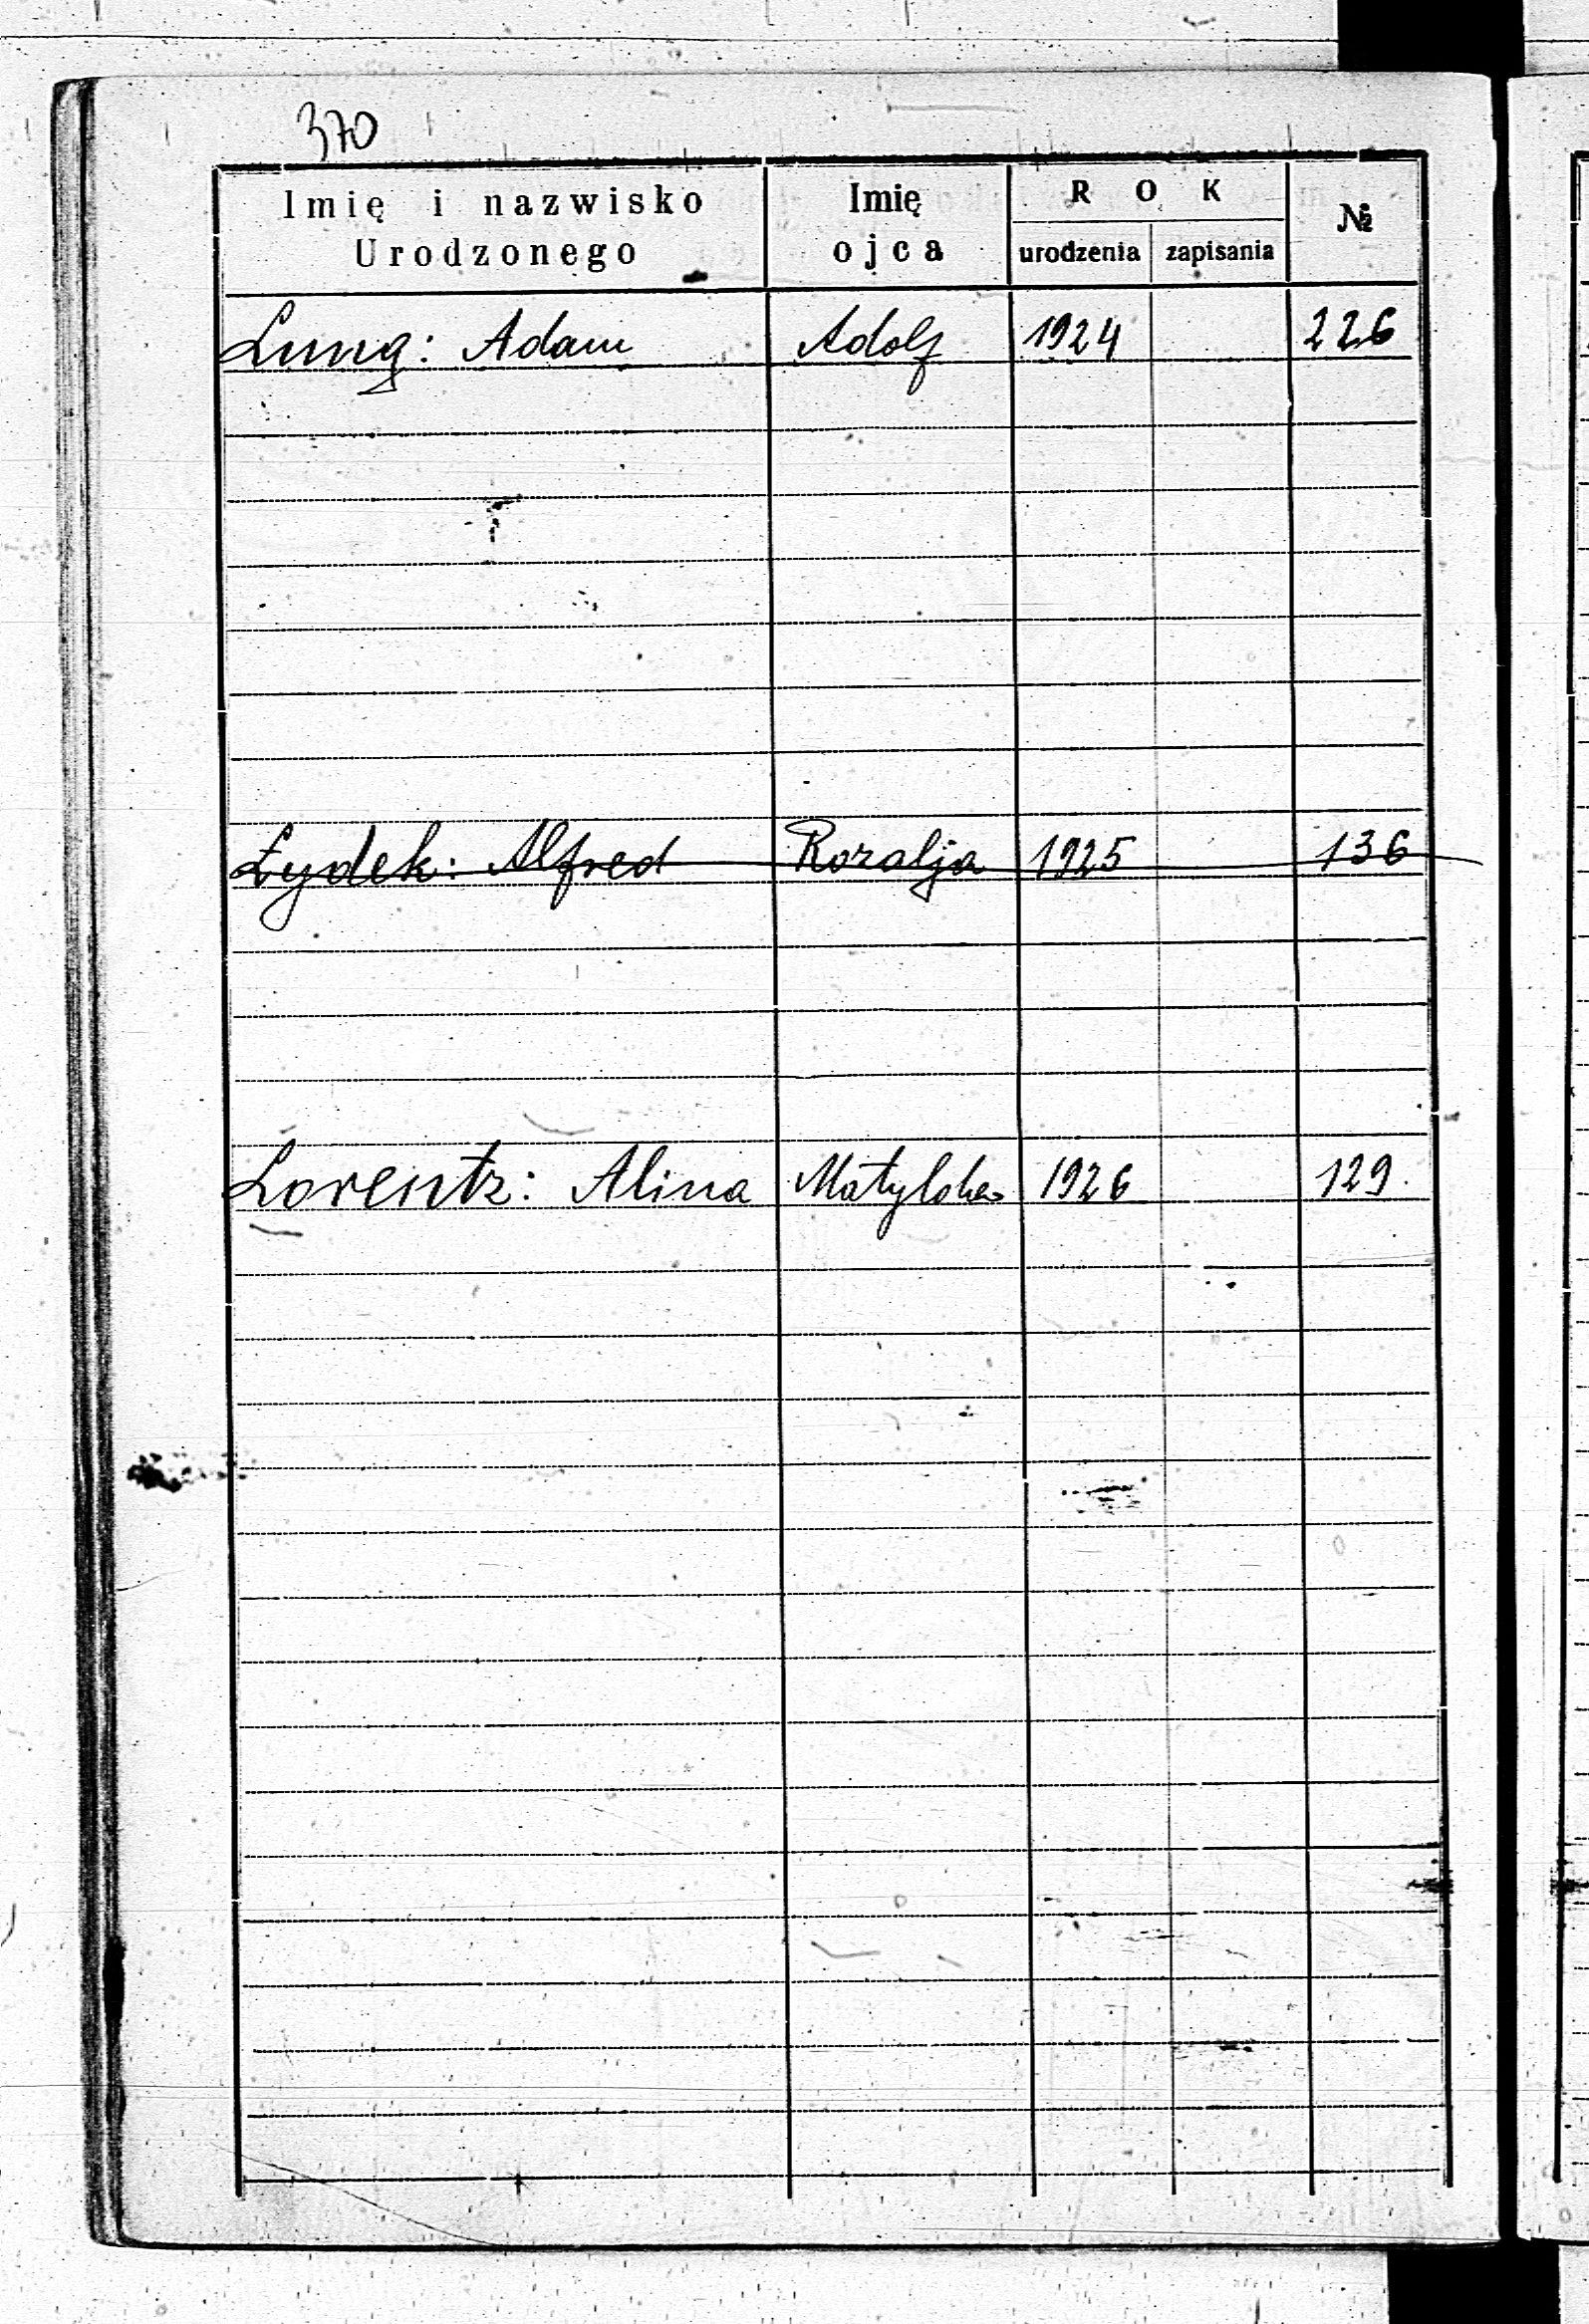 370
Imię i nazwisko Urodzonego Imię ojca ROK urodzenia zapisania №
Lung: Adam Adolf 1924 226
Łydek: Alfred Rozalja 1925 136
Lorentz: Alina Matylda 1926 129.